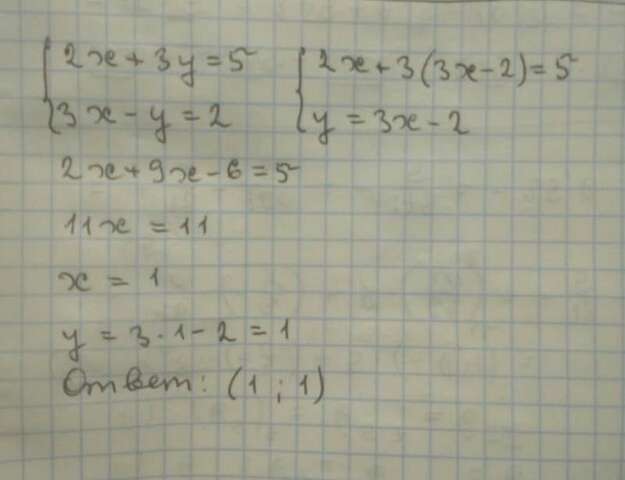 2x + 3y = 5 2x + 3(3x - 2) = 5
3x - y = 2 y = 3x - 2
2x + 9x - 6 = 5
11x = 11
x = 1
y = 3 · 1 - 2 = 1
Ответ: (1 ; 1)